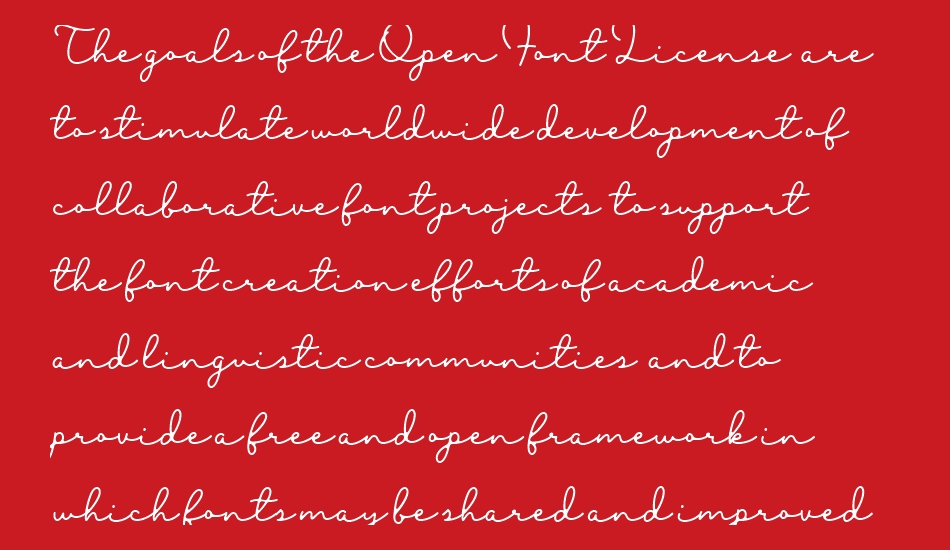 The goals of the Open Font License are
to stimulate worldwide development of
collaborative font projects to support
the font creation efforts of academic
and linguistic communities and to
provide a free and open framework in
which fonts may be shared and improved